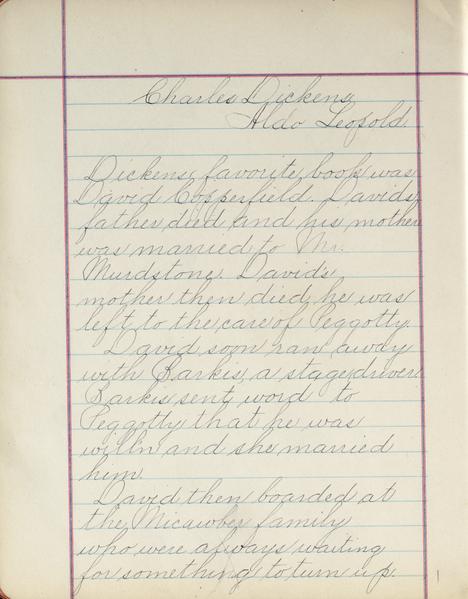 Charles Dickens
Aldo Leopold.
Dickens favorite book was
David Copperfield. Davids
father died and his mother
was married to Mr.
Murdstone. Davids
mother then died he was
left to the care of Peggotty.
David soon ran away
with Barkis, a stagedriver.
Barkis sent word to
Peggotty that he was
willin and she married
him.
David then boarded at
the Micawber family
who were always waiting
for something to turn up.